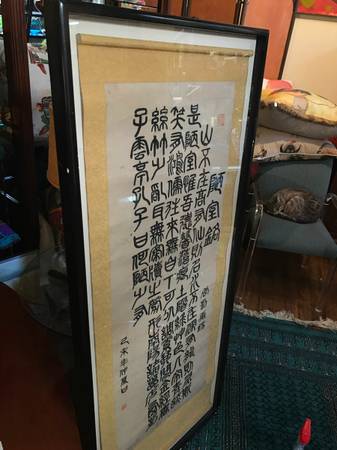 陋室銘
山不在高有仙則名水不在深有龍則靈斯
是陋室惟吾德馨苔痕上階綠草色入簾青談
笑有鴻儒往來無白丁可以調素琴閱金經無
絲竹之亂耳無案牘之勞形南陽諸葛廬西蜀
子雲亭孔子曰何陋之有
己未